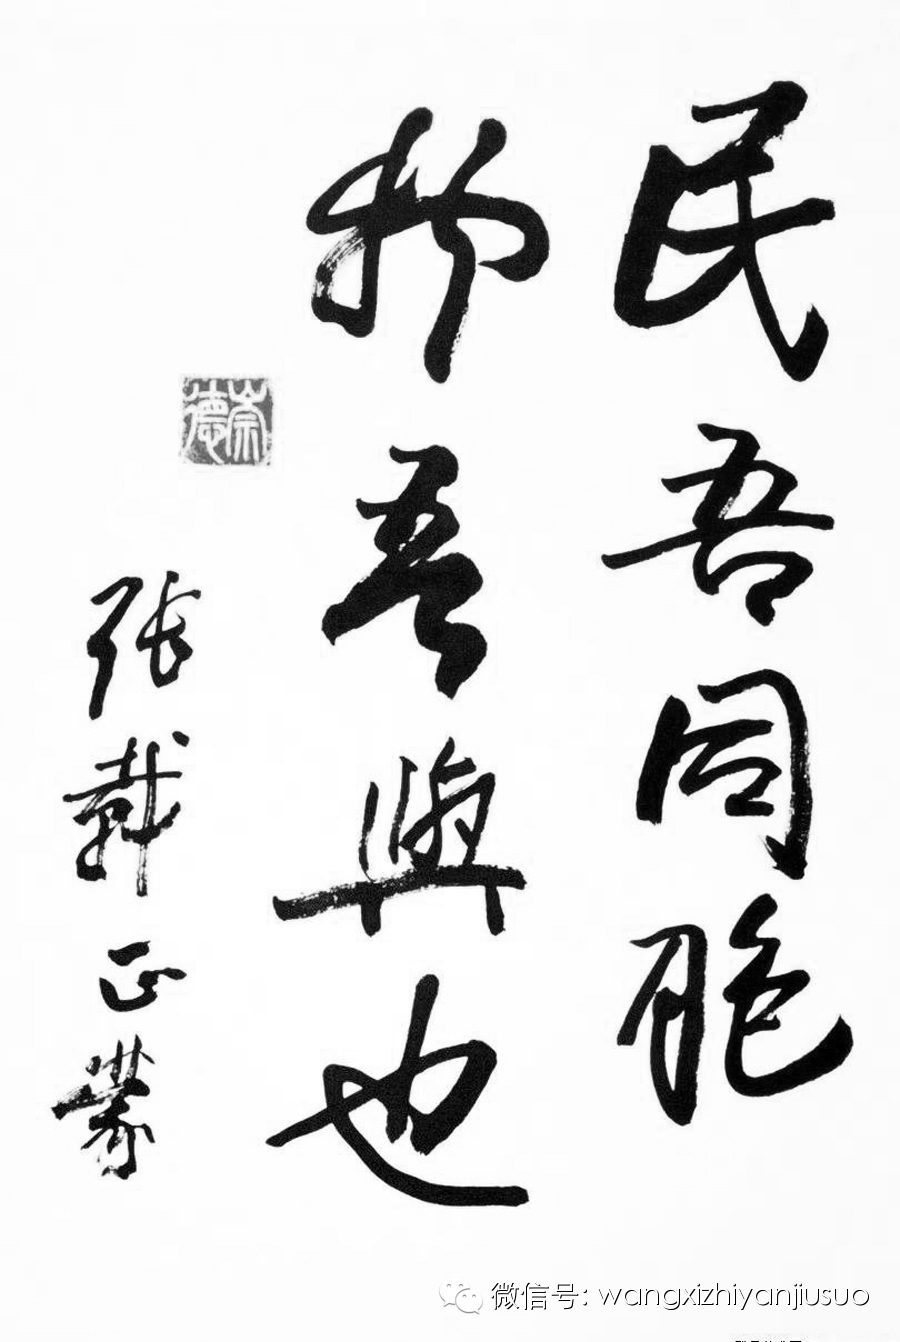 民吾同胞
物吾與也
張載正蒙
崇德
微信号: wangxizhiyanjiusuo